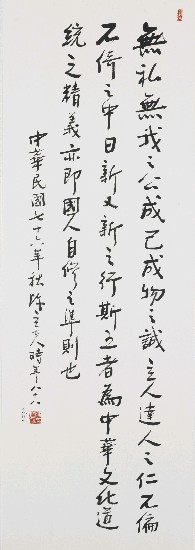 無私無我之公成己成物之誠立人達人之仁不偏
不倚之中日新又新之行斯五者為中華文化道
統之精義亦即國人自修之準則也
中華民國七十六年秋陳立夫時年八十八